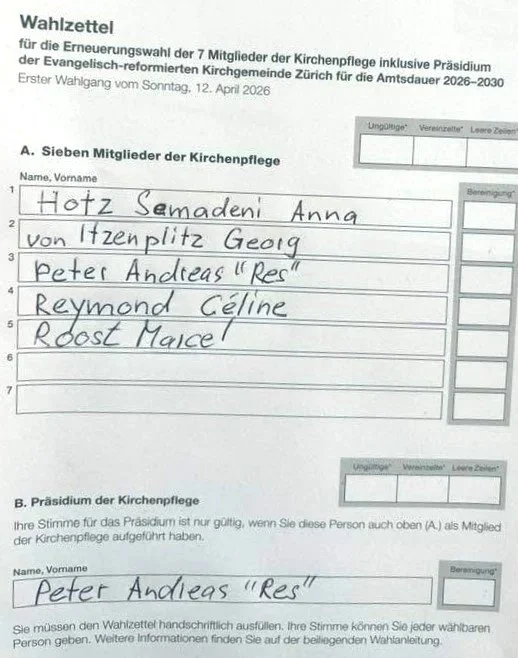 Wahlzettel
für die Erneuerungswahl der 7 Mitglieder der Kirchenpflege inklusive Präsidium
der Evangelisch-reformierten Kirchgemeinde Zürich für die Amtsdauer 2026–2030
Erster Wahlgang vom Sonntag, 12. April 2026
Ungültige* Vereinzelte* Leere Zeilen*
A. Sieben Mitglieder der Kirchenpflege
Name, Vorname
Bereinigung*
1 Hotz Semadeni Anna
2 von Itzenplitz Georg
3 Peter Andreas "Res"
4 Reymond Céline
5 Roost Marcel
6
7
Ungültige* Vereinzelte* Leere Zeilen*
B. Präsidium der Kirchenpflege
Ihre Stimme für das Präsidium ist nur gültig, wenn Sie diese Person auch oben (A.) als Mitglied
der Kirchenpflege aufgeführt haben.
Name, Vorname
Bereinigung*
Peter Andreas "Res"
Sie müssen den Wahlzettel handschriftlich ausfüllen. Ihre Stimme können Sie jeder wählbaren
Person geben. Weitere Informationen finden Sie auf der beiliegenden Wahlanleitung.